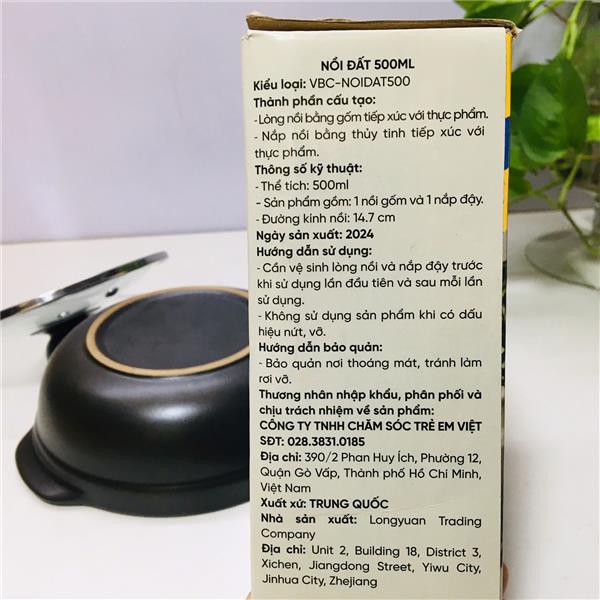 NỒI ĐẤT 500ML
Kiểu loại: VBC-NOIDAT500
Thành phần cấu tạo:
- Lòng nồi bằng gốm tiếp xúc với thực phẩm.
- Nắp nồi bằng thủy tinh tiếp xúc với
thực phẩm.
Thông số kỹ thuật:
- Thể tích: 500ml
- Sản phẩm gồm: 1 nồi gốm và 1 nắp đậy.
- Đường kinh nồi: 14.7 cm
Ngày sản xuất: 2024
Hướng dẫn sử dụng:
- Cần vệ sinh lòng nồi và nắp đậy trước
khi sử dụng lần đầu tiên và sau mỗi lần
sử dụng.
- Không sử dụng sản phẩm khi có dấu
hiệu nứt, vỡ.
Hướng dẫn bảo quản:
- Bảo quản nơi thoáng mát, tránh làm
rơi vỡ.
Thương nhân nhập khẩu, phân phối và
chịu trách nhiệm về sản phẩm:
CÔNG TY TNHH CHĂM SÓC TRẺ EM VIỆT
SĐT: 028.3831.0185
Địa chỉ: 390/2 Phan Huy Ích, Phường 12,
Quận Gò Vấp, Thành phố Hồ Chí Minh,
Việt Nam
Xuất xứ: TRUNG QUỐC
Nhà sản xuất: Longyuan Trading
Company
Địa chỉ: Unit 2, Building 18, District 3,
Xichen, Jiangdong Street, Yiwu City,
Jinhua City, Zhejiang